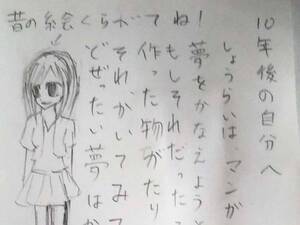 10年後の自分へ
しょうらいは、マンガ
夢をかなえようと
もしそれだった
作った物がたり
それ、かいてみて
どぜったい夢はか
昔の絵くらべてね!